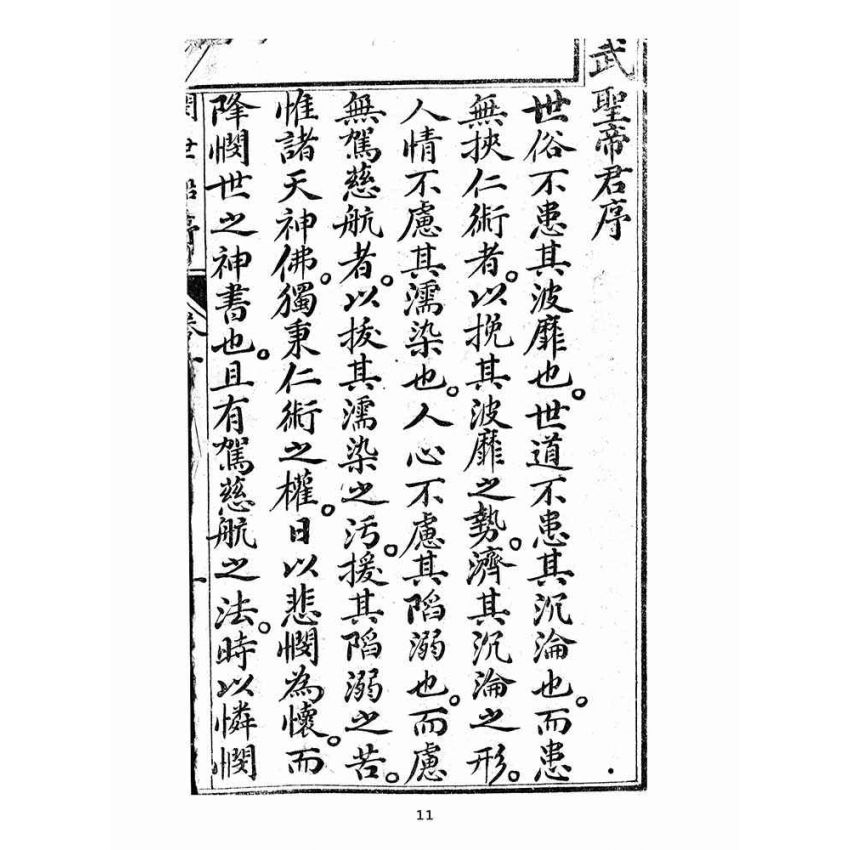 武聖帝君序
世俗不患其波靡也。世道不患其沉淪也。而患
無挾仁術者。以挽其波靡之勢。濟其沉淪之形。
人情不慮其濡染也。人心不慮其陷溺也。而慮
無駕慈航者。以拔其濡染之污。援其陷溺之苦。
惟諸天神佛。獨秉仁術之權。日以悲憫為懷。而
降憫世之神書也。且有駕慈航之法。時以憐憫
11